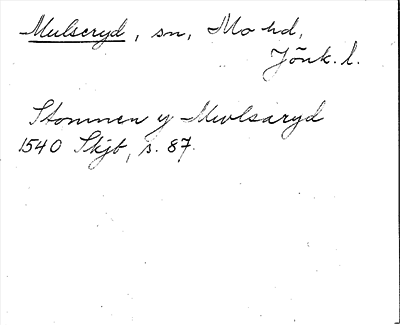 Mulseryd, sn, Mo hd,
Jönk. l.
Stommen y Mwlsaryd
1540 Skjb, s. 87.